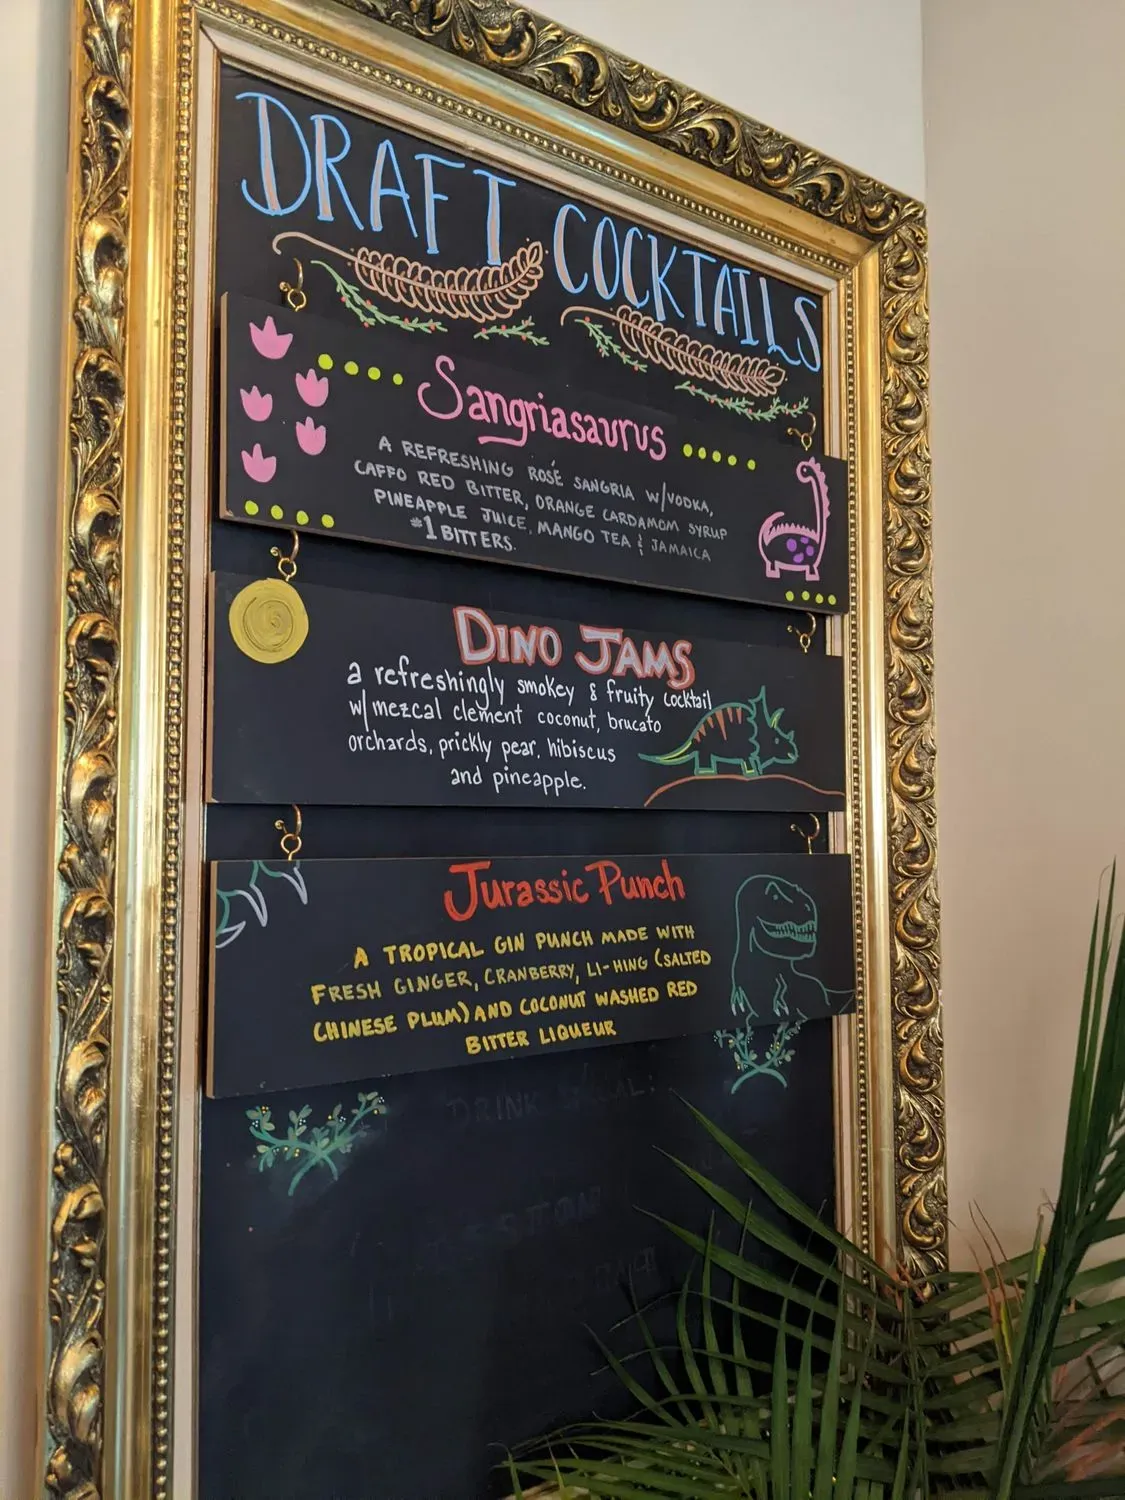 DRAFT COCKTAILS
Sangriasaurus
A REFRESHING ROSÉ SANGRIA W/VODKA,
CAFFO RED BITTER, ORANGE CARDAMOM SYRUP
PINEAPPLE JUICE, MANGO TEA & JAMAICA
#1 BITTERS.
DINO JAMS
a refreshingly smokey & fruity cocktail
w/mezcal clement coconut, brucato
orchards, prickly pear, hibiscus
and pineapple.
Jurassic Punch
A TROPICAL GIN PUNCH MADE WITH
FRESH GINGER, CRANBERRY, LI-HING (SALTED
CHINESE PLUM) AND COCONUT WASHED RED
BITTER LIQUEUR
DRINK